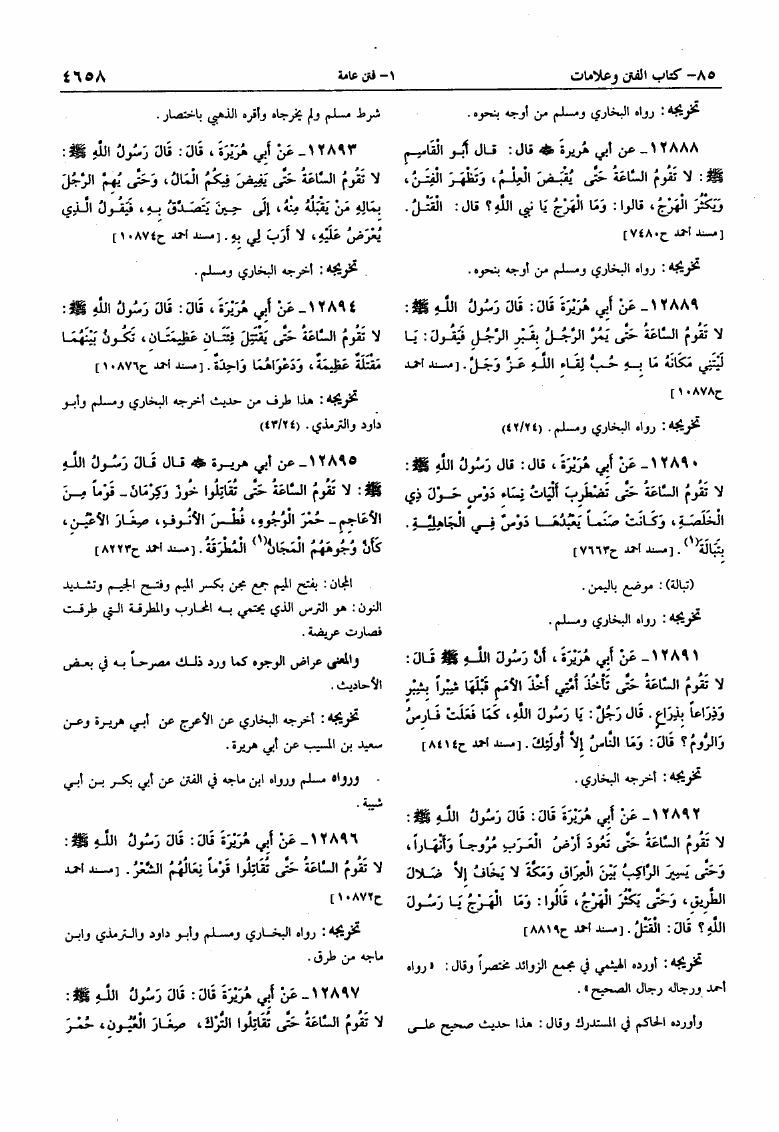 ٨٥- كتاب الفتن وعلامات
١- فتن عامة
٤٦٥٨
تخريجه: رواه البخاري ومسلم من أوجه بنحوه.
١٢٨٨٨- عن أبي هُريرةَ ﷺ قال: قال أَبُو الْقَاسِمِ
ﷺ: لا تَقُومُ السَّاعَةُ حَتَّى يُقْبَضَ الْعِلْمُ، وَتَظْهَرَ الْفِتَنُ،
وَيَكْثُرَ الْهَرْجُ، قالوا: وَمَا الْهَرْجُ يَا نبي اللَّهِ؟ قال: الْقَتْلُ.
[مسند أحمد ح٧٤٨٠]
تخريجه: رواه البخاري ومسلم من أوجه بنحوه.
١٢٨٨٩- عَنْ أَبِي هُرَيْرَةَ قَالَ: قَالَ رَسُولُ اللَّهِ ﷺ:
لا تَقُومُ السَّاعَةُ حَتَّى يَمُرَّ الرَّجُلُ بِقَبْرِ الرَّجُلِ فَيَقُولَ: يَا
لَيْتَنِي مَكَانَهُ مَا بِهِ حُبُّ لِقَاءِ اللَّهِ عَزَّ وَجَلَّ. [مسند أحمد
ح١٠٨٧٨]
تخريجه: رواه البخاري ومسلم. (٤٢/٢٤)
١٢٨٩٠- عَنْ أَبِي هُرَيْرَةَ، قال: قال رَسُولُ اللَّهِ ﷺ:
لا تَقُومُ السَّاعَةُ حَتَّى تَضْطَرِبَ أَلْيَاتُ نِسَاءِ دَوْسٍ حَوْلَ ذِي
الْخَلَصَةِ، وَكَانَتْ صَنَماً يَعْبُدُهَا دَوْسٌ فِي الْجَاهِلِيَّةِ.
بِتَبَالَةَ(١). [مسند أحمد ح٧٦٦٣]
(تبالة): موضع باليمن.
تخريجه: رواه البخاري ومسلم.
١٢٨٩١- عَنْ أَبِي هُرَيْرَةَ، أَنَّ رَسُولَ اللَّهِ ﷺ قَالَ:
لا تَقُومُ السَّاعَةُ حَتَّى تَأْخُذَ أُمَّتِي أَخْذَ الأُمَمِ قَبْلَهَا شِبْراً بِشِبْرٍ
وَذِرَاعاً بِذِرَاعٍ. قَال رَجُلٌ: يَا رَسُولَ اللَّهِ، كَمَا فَعَلَتْ فَارِسُ
وَالرُّومُ؟ قَالَ: وَمَا النَّاسُ إِلاَّ أُولَئِكَ. [مسند أحمد ح٨٤١٤]
تخريجه: أخرجه البخاري.
١٢٨٩٢- عَنْ أَبِي هُرَيْرَةَ قَالَ: قَالَ رَسُولُ اللَّهِ ﷺ:
لا تَقُومُ السَّاعَةُ حَتَّى تَعُودَ أَرْضُ الْعَرَبِ مُرُوجاً وَأَنْهَاراً،
وَحَتَّى يَسِيرَ الرَّاكِبُ بَيْنَ الْعِرَاقِ وَمَكَّةَ لا يَخَافُ إِلاَّ ضَلالَ
الطَّرِيقِ، وَحَتَّى يَكْثُرَ الْهَرْجُ، قَالُوا: وَمَا الْهَرْجُ يَا رَسُولَ
اللَّهِ؟ قَالَ: الْقَتْلُ. [مسند أحمد ح٨٨١٩]
تخريجه: أورده الهيثمي في مجمع الزوائد مختصراً وقال: «رواه
أحمد ورجاله رجال الصحيح».
وأورده الحاكم في المستدرك وقال: هذا حديث صحيح على
شرط مسلم ولم يخرجاه وأقره الذهبي باختصار.
١٢٨٩٣- عَنْ أَبِي هُرَيْرَةَ، قَالَ: قَالَ رَسُولُ اللَّهِ ﷺ:
لا تَقُومُ السَّاعَةُ حَتَّى يَفِيضَ فِيكُمُ الْمَالُ، وَحَتَّى يُهِمَّ الرَّجُلَ
بِمَالِهِ مَنْ يَقْبَلُهُ مِنْهُ، إِلَى حِينَ يَتَصَدَّقُ بِهِ، فَيَقُولُ الَّذِي
يُعْرَضُ عَلَيْهِ، لا أَرَبَ لِي بِهِ. [مسند أحمد ح١٠٨٧٤]
تخريجه: أخرجه البخاري ومسلم.
١٢٨٩٤- عَنْ أَبِي هُرَيْرَةَ، قَالَ: قَالَ رَسُولُ اللَّهِ ﷺ:
لا تَقُومُ السَّاعَةُ حَتَّى يَقْتَتِلَ فِئَتَانِ عَظِيمَتَانِ، تَكُونُ بَيْنَهُمَا
مَقْتَلَةٌ عَظِيمَةٌ، وَدَعْوَاهُمَا وَاحِدَةٌ. [مسند أحمد ح١٠٨٧٦]
تخريجه: هذا طرف من حديث أخرجه البخاري ومسلم وأبو
داود والترمذي. (٤٣/٢٤)
١٢٨٩٥- عن أبي هريرة ﷺ قال قَالَ رَسُولُ اللَّهِ
ﷺ: لا تَقُومُ السَّاعَةُ حَتَّى تُقَاتِلُوا خُوزَ وَكِرْمَانَ- قَوْماً مِنَ
الأَعَاجِمِ- حُمْرَ الْوُجُوهِ، فُطْسَ الأُنُوفِ، صِغَارَ الأَعْيُنِ،
كَأَنَّ وُجُوهَهُمُ الْمَجَانُّ(١) الْمُطْرَقَةُ. [مسند أحمد ح٨٢٢٣]
المجان: بفتح الميم جمع مجن بكسر الميم وفتح الجيم وتشديد
النون: هو الترس الذي يحتمي به المحارب والمطرقة التي طرقت
فصارت عريضة.
والمعنى عراض الوجوه كما ورد ذلك مصرحاً به في بعض
الأحاديث.
تخريجه: أخرجه البخاري عن الأعرج عن أبي هريرة وعن
سعيد بن المسيب عن أبي هريرة.
ورواه مسلم ورواه ابن ماجه في الفتن عن أبي بكر بن أبي
شيبة.
١٢٨٩٦- عَنْ أَبِي هُرَيْرَةَ قَالَ: قَالَ رَسُولُ اللَّهِ ﷺ:
لا تَقُومُ السَّاعَةُ حَتَّى تُقَاتِلُوا قَوْماً نِعَالُهُمُ الشَّعْرُ. [مسند أحمد
ح١٠٨٧٢]
تخريجه: رواه البخاري ومسلم وأبو داود والترمذي وابن
ماجه من طرق.
١٢٨٩٧- عَنْ أَبِي هُرَيْرَةَ قَالَ: قَالَ رَسُولُ اللَّهِ ﷺ:
لا تَقُومُ السَّاعَةُ حَتَّى تُقَاتِلُوا التُّرْكَ، صِغَارَ الْعُيُونِ، حُمْرَ